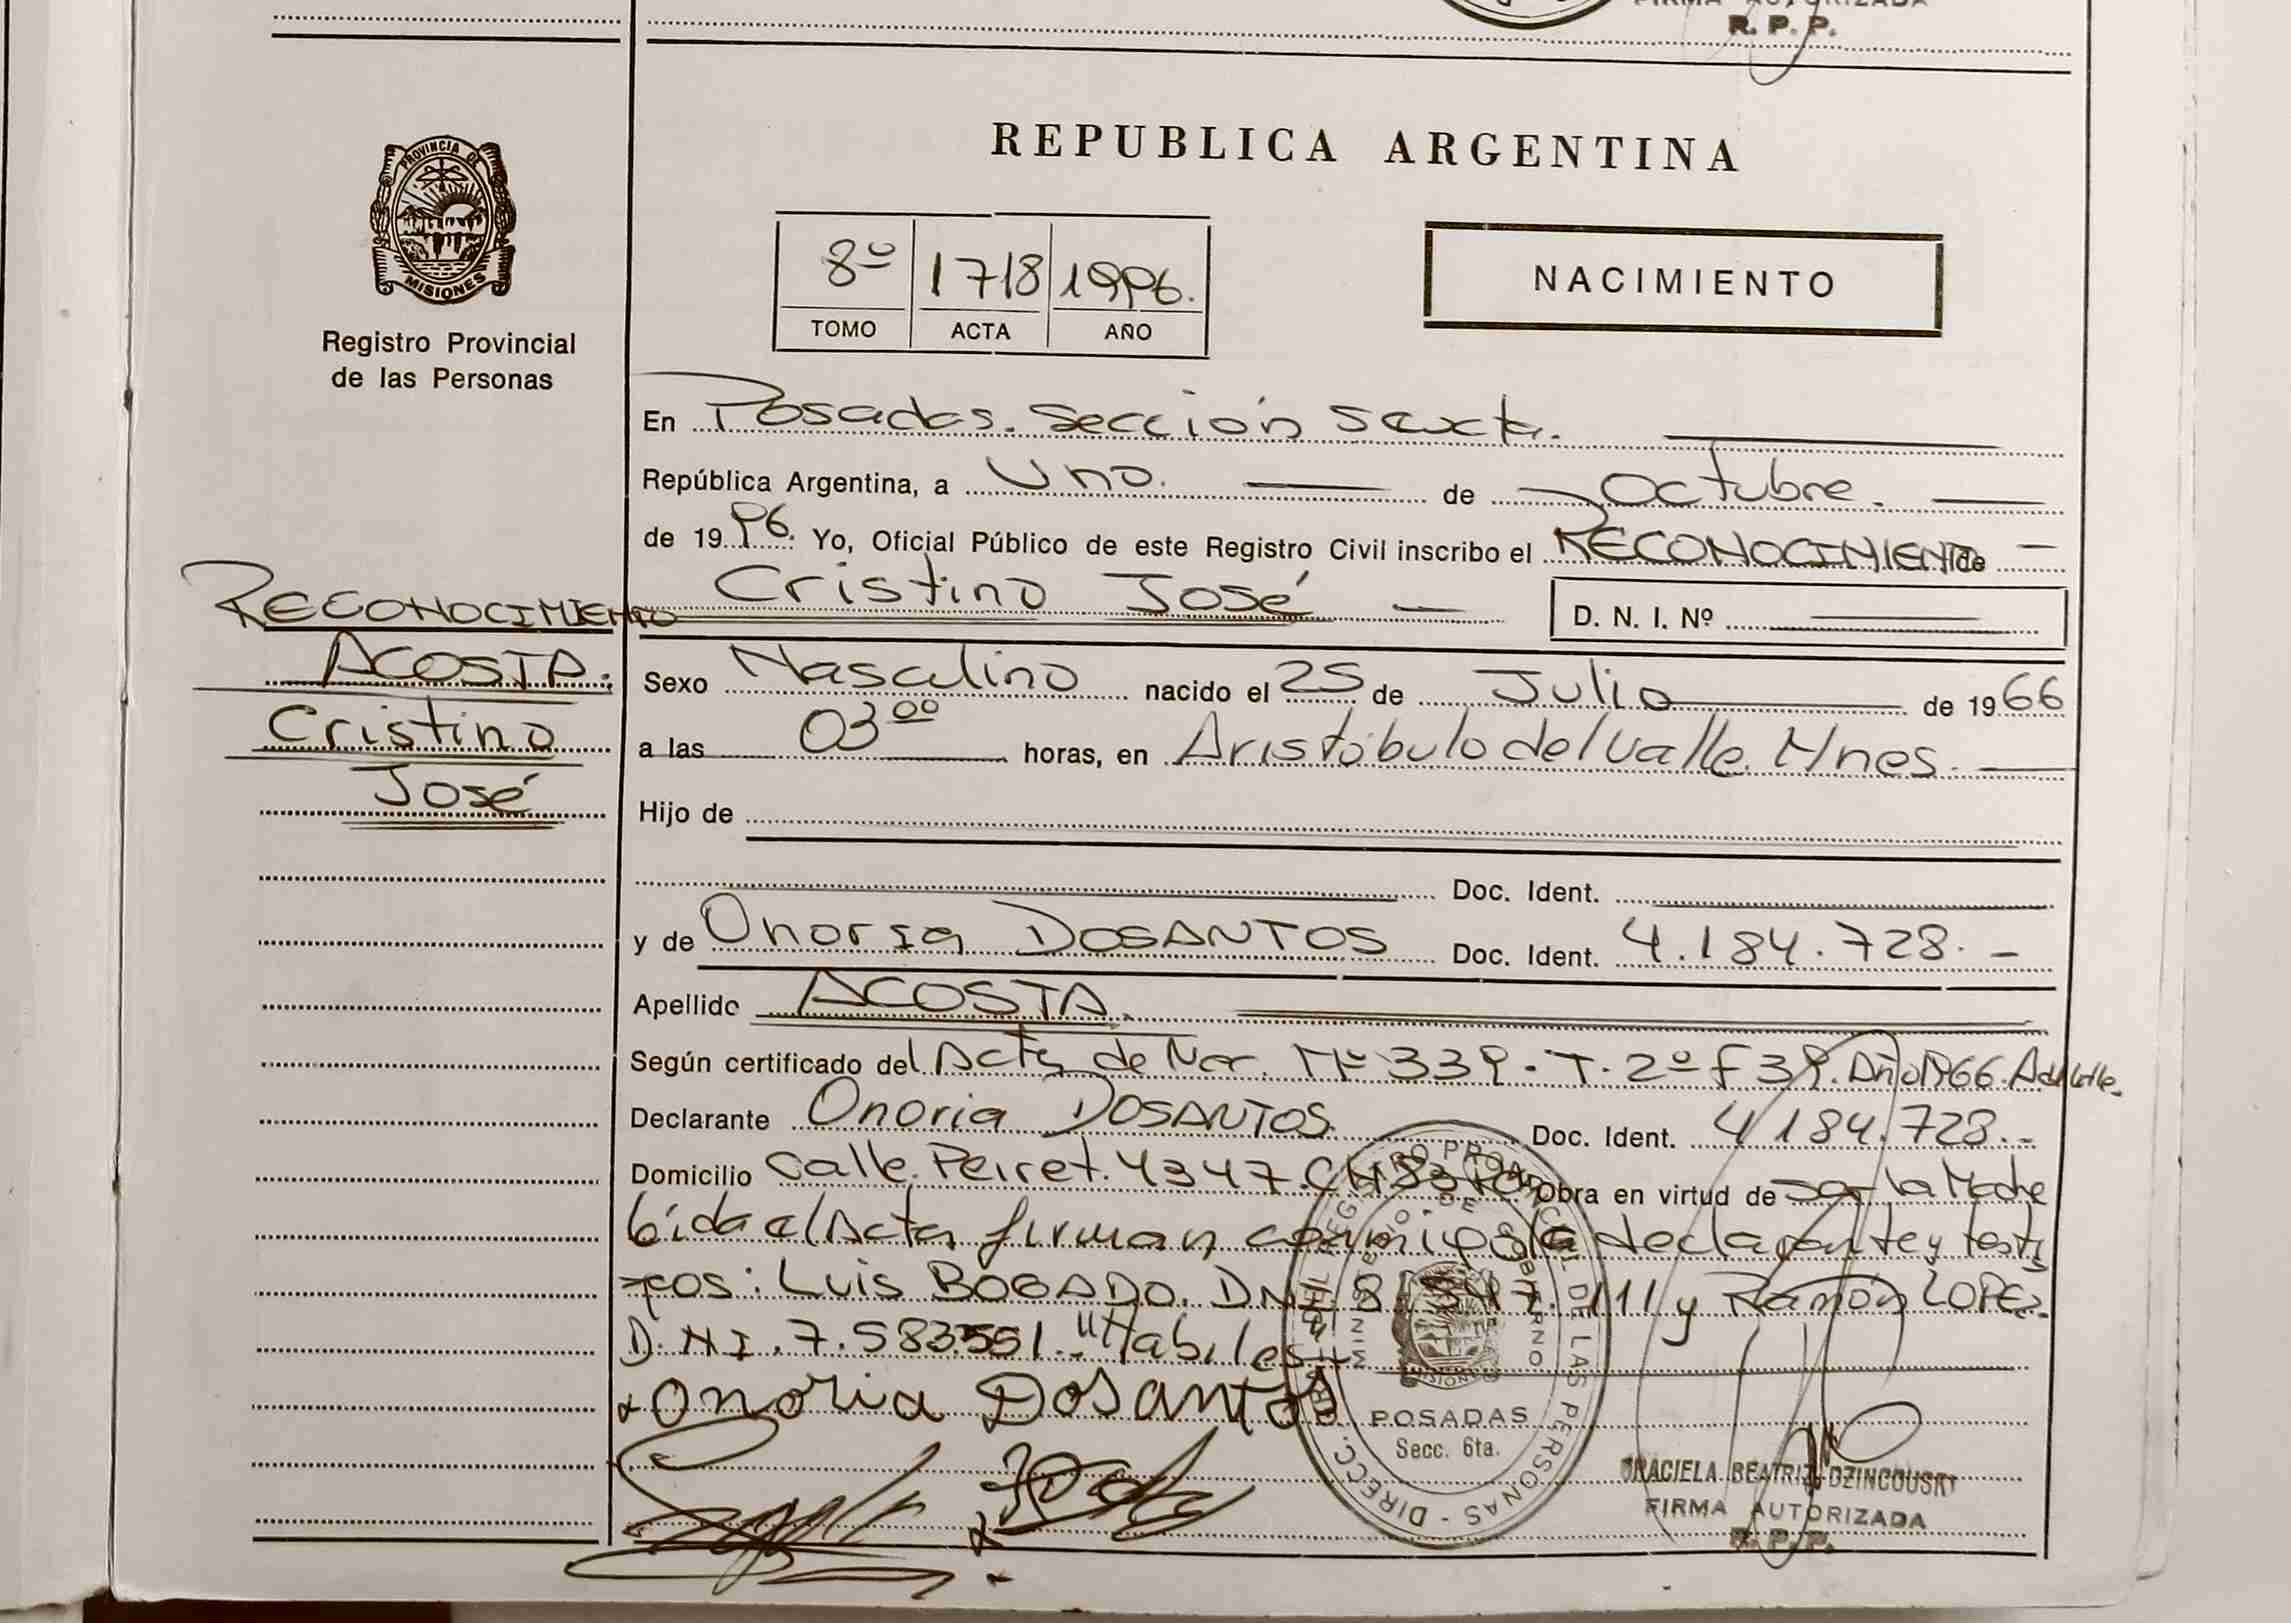 FIRMA AUTORIZADA
R. P. P.
PROVINCIA DE
MISIONES
Registro Provincial
de las Personas
REPUBLICA ARGENTINA
8º 1718 1996.
TOMO ACTA AÑO
NACIMIENTO
En Posadas. Sección Sexta.
República Argentina, a Uno. de Octubre.
de 1996. Yo, Oficial Público de este Registro Civil inscribo el RECONOCIMIENTO de
Cristino José D. N. I. Nº
RECONOCIMIENTO
ACOSTA.
Cristino
José
Sexo Masculino nacido el 25 de Julio de 1966
a las 03 00 horas, en Aristóbulo del Valle. Mnes.
Hijo de
Doc. Ident.
y de Onoria DOSANTOS Doc. Ident. 4.184.728.-
Apellido ACOSTA.
Según certificado del Acta de Nac. Nº 339. T. 2º F 39. Año 1966. A del Valle.
Declarante Onoria DOSANTOS. Doc. Ident. 4.184.728.-
Domicilio Calle. Peiret. 4347. Obra en virtud de ser la Madre
leída el Acta firman conmigo la declarante y testi
gos: Luis BOGADO. DNI 8. 111 y Ramón LOPEZ.
D.N.I. 7.583.551. "Habiles
Onoria Dosantos
DIRECC. GRAL. REGISTRO PROVINCIAL DE LAS PERSONAS
MINISTERIO DE GOBIERNO
MISIONES
POSADAS
Secc. 6ta.
GRACIELA BEATRIZ DZINCOUSKI
FIRMA AUTORIZADA
R. P. P.